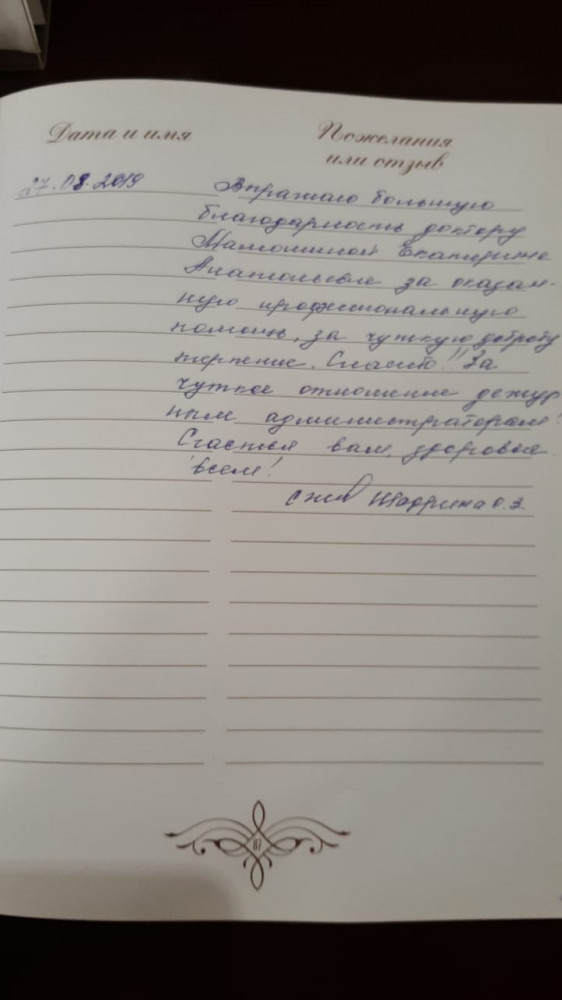 Дата и имя
Пожелания
или отзыв
27.08.2019 Выражаю большую
благодарность доктору
Екатерине
Анатольевне за оказан-
ную профессиональную
помощь, за чуткую доброту
терпение. Спасибо!! За
чуткое отношение дежур
ным администраторам!
Счастья вам, здоровья
всем!
Шадрина О.З.
87